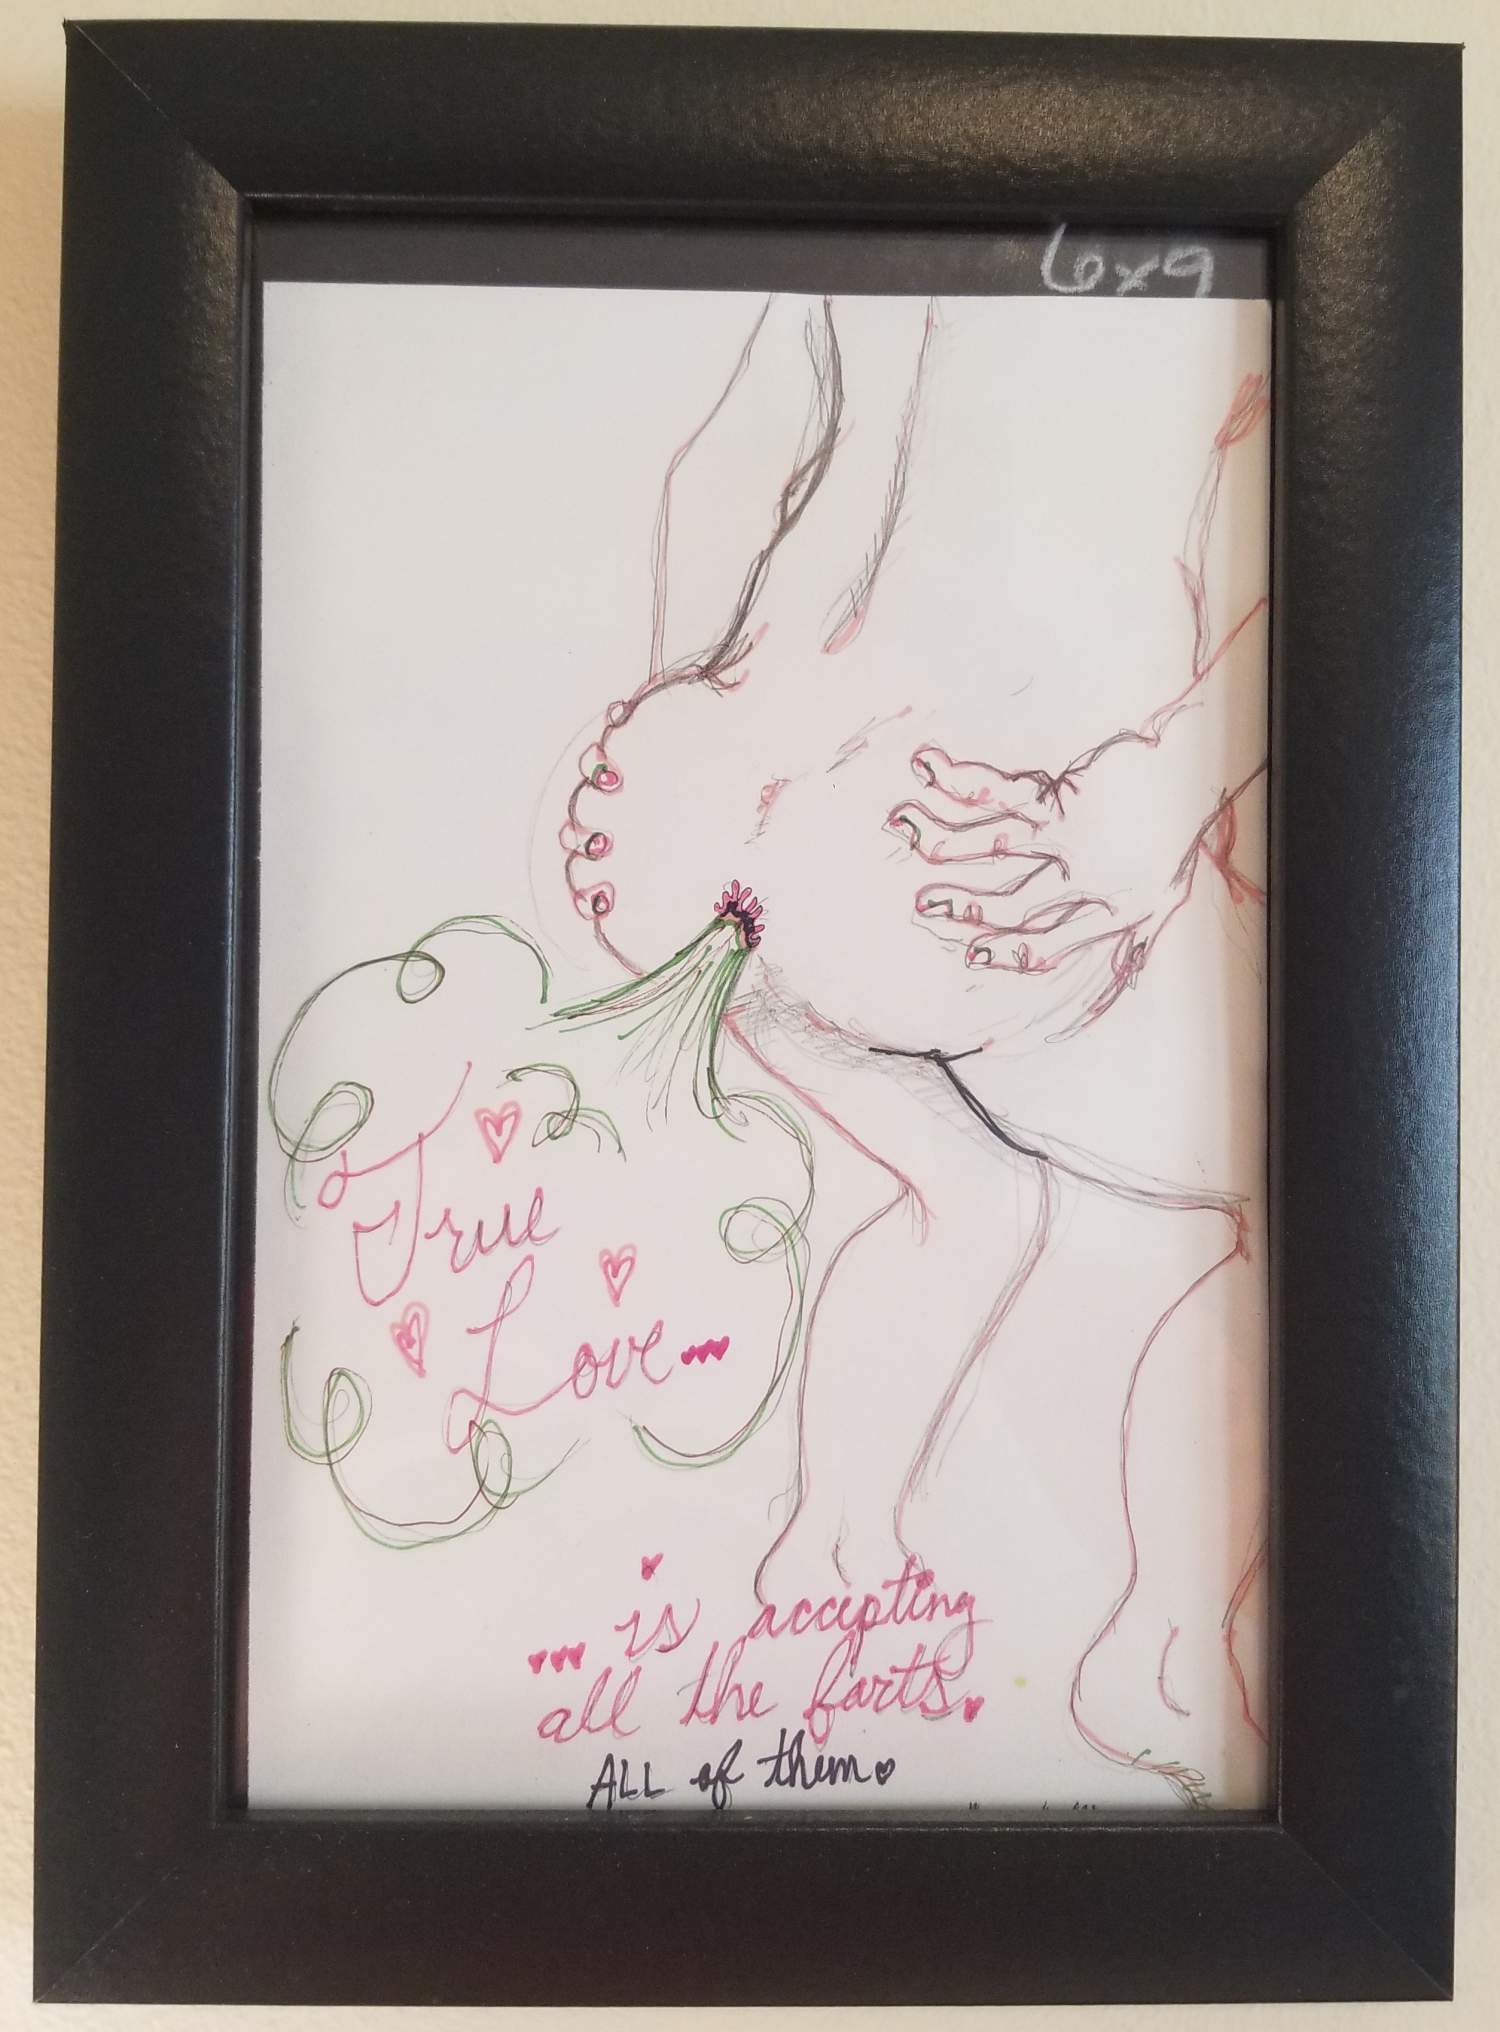 6x9
True
Love...
... is accepting
all the farts.
ALL of them